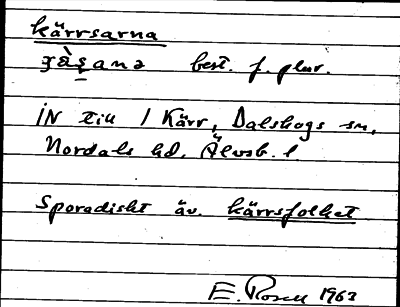 kärrsarna
best. f. plur.
IN till 1 Kärr, Dalskogs sn,
Nordals hd, Älvsb. l
Sporadiskt äv. kärrsfolket
E. Rosell 1963